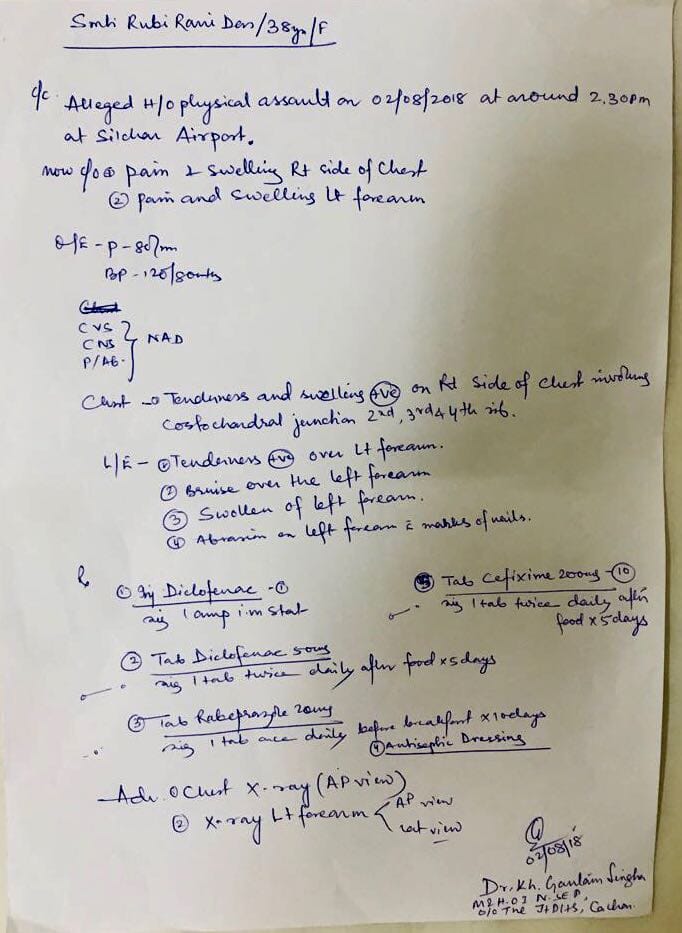 Smti Rubi Rani Das/38yrs/F
c/c. Alleged H/o physical assault on 02/08/2018 at around 2.30pm
at Silchar Airport.
now c/o ① pain & swelling Rt side of Chest
② pain and swelling Lt forearm
O/E - P - 80/min
BP - 120/80mmHg
CVS
CNS } NAD
P/Ab.
Chest → Tenderness and swelling +ve on Rt side of chest involving
costochondral junction 2nd, 3rd & 4th rib.
L/E - ① Tenderness +ve over Lt forearm.
② Bruise over the left forearm
③ Swollen of left forearm.
④ Abrasion on left forearm c̄ marks of nails.
Rx
① Inj Diclofenac - ①
sig 1 amp i.m stat
⑤ Tab Cefixime 200mg - ⑩
sig 1 tab twice daily after
food x 5 days
② Tab Diclofenac 50mg
sig 1 tab twice daily after food x 5 days
③ Tab Rabeprazole 20mg
sig 1 tab once daily before breakfast x 10 days
④ Antiseptic Dressing
Adv. ① Chest X-ray (AP view)
② X-ray Lt forearm < AP view
Lat view
02/08/18
Dr. Kh. Gautam Singha
M & H.O I
O/o The Jt DHS, Cachar.